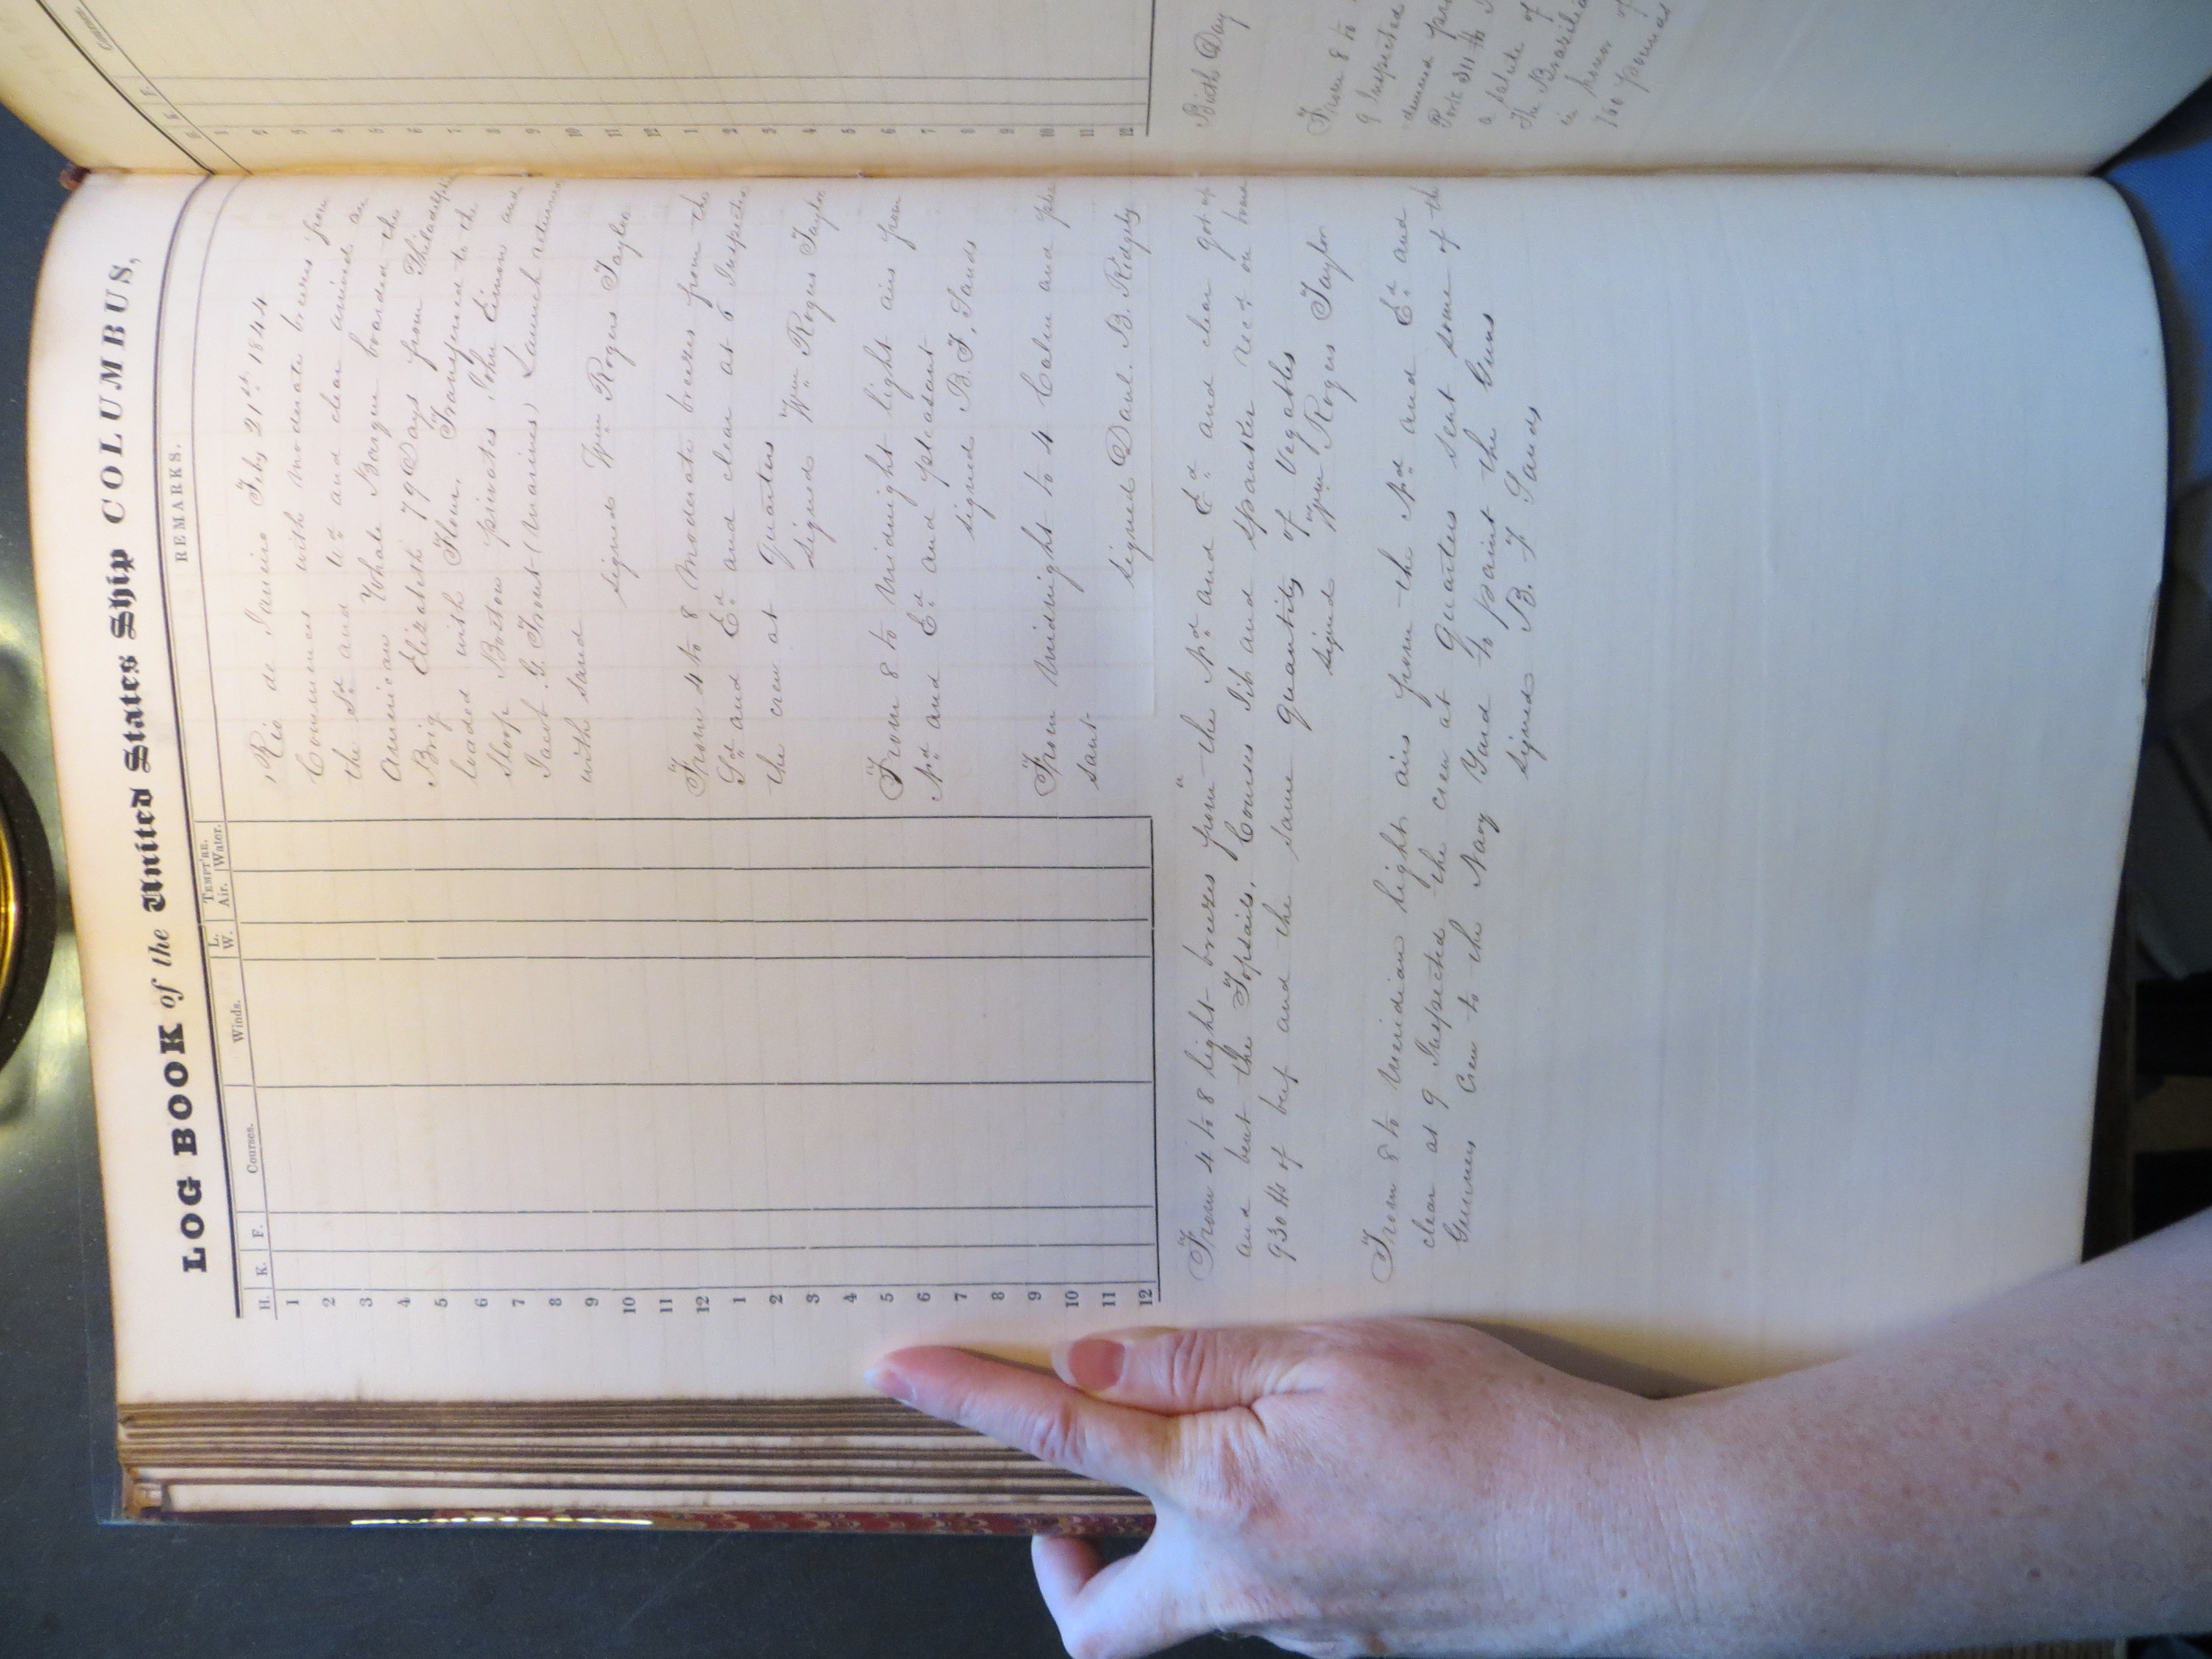 LOG BOOK of the United States Ship COLUMBUS,
H. K. F. Courses. Winds. L. W. TEMPT'RE. Air. Water. REMARKS.
1
2
3
4
5
6
7
8
9
10
11
12
1
2
3
4
5
6
7
8
9
10
11
12
Rio de Janeiro Feby 21st 1844
Commences with moderate breezes from
the Sd and Wd and clear arrived an
American Whale Barque boarded the
Brig Elizabeth 79 Days from Philadelphia
loaded with Flour, Transfered to the
Sloop Boston privates John Eimons and
Jacob G. Trout (Marines) Launch returned
with sand
signed Wm Rogers Taylor
From 4 to 8 Moderate breezes from the
Sd and Ed and clear at 6 Inspected
the crew at Quarters
signed Wm Rogers Taylor
From 8 to Midnight light airs from
Nd and Ed and pleasant
signed B. F. Sands
From Midnight to 4 Calm and plea
sant
signed Danl. B. Ridgely
From 4 to 8 light breezes from the Nd and Ed and clear got up
and bent the Topsails, Courses Jib and Spanker recd on board
930 lbs of beef and the same quantity of Vegatbles
signed Wm Rogers Taylor
From 8 to Meridian light airs from the Nd and Ed and
clear at 9 Inspected the crew at Quarters sent some of the
Gunners Crew to the Navy Yard to paint the Guns
signed B. F Sands
Courses
H. K. F.
1
2
3
4
5
6
7
8
9
10
11
12
1
2
3
4
5
6
7
8
9
10
11
12
Birth Day
From 8 to
9 Inspected
a salute of
The Brazilia
in honor of
760 pounds